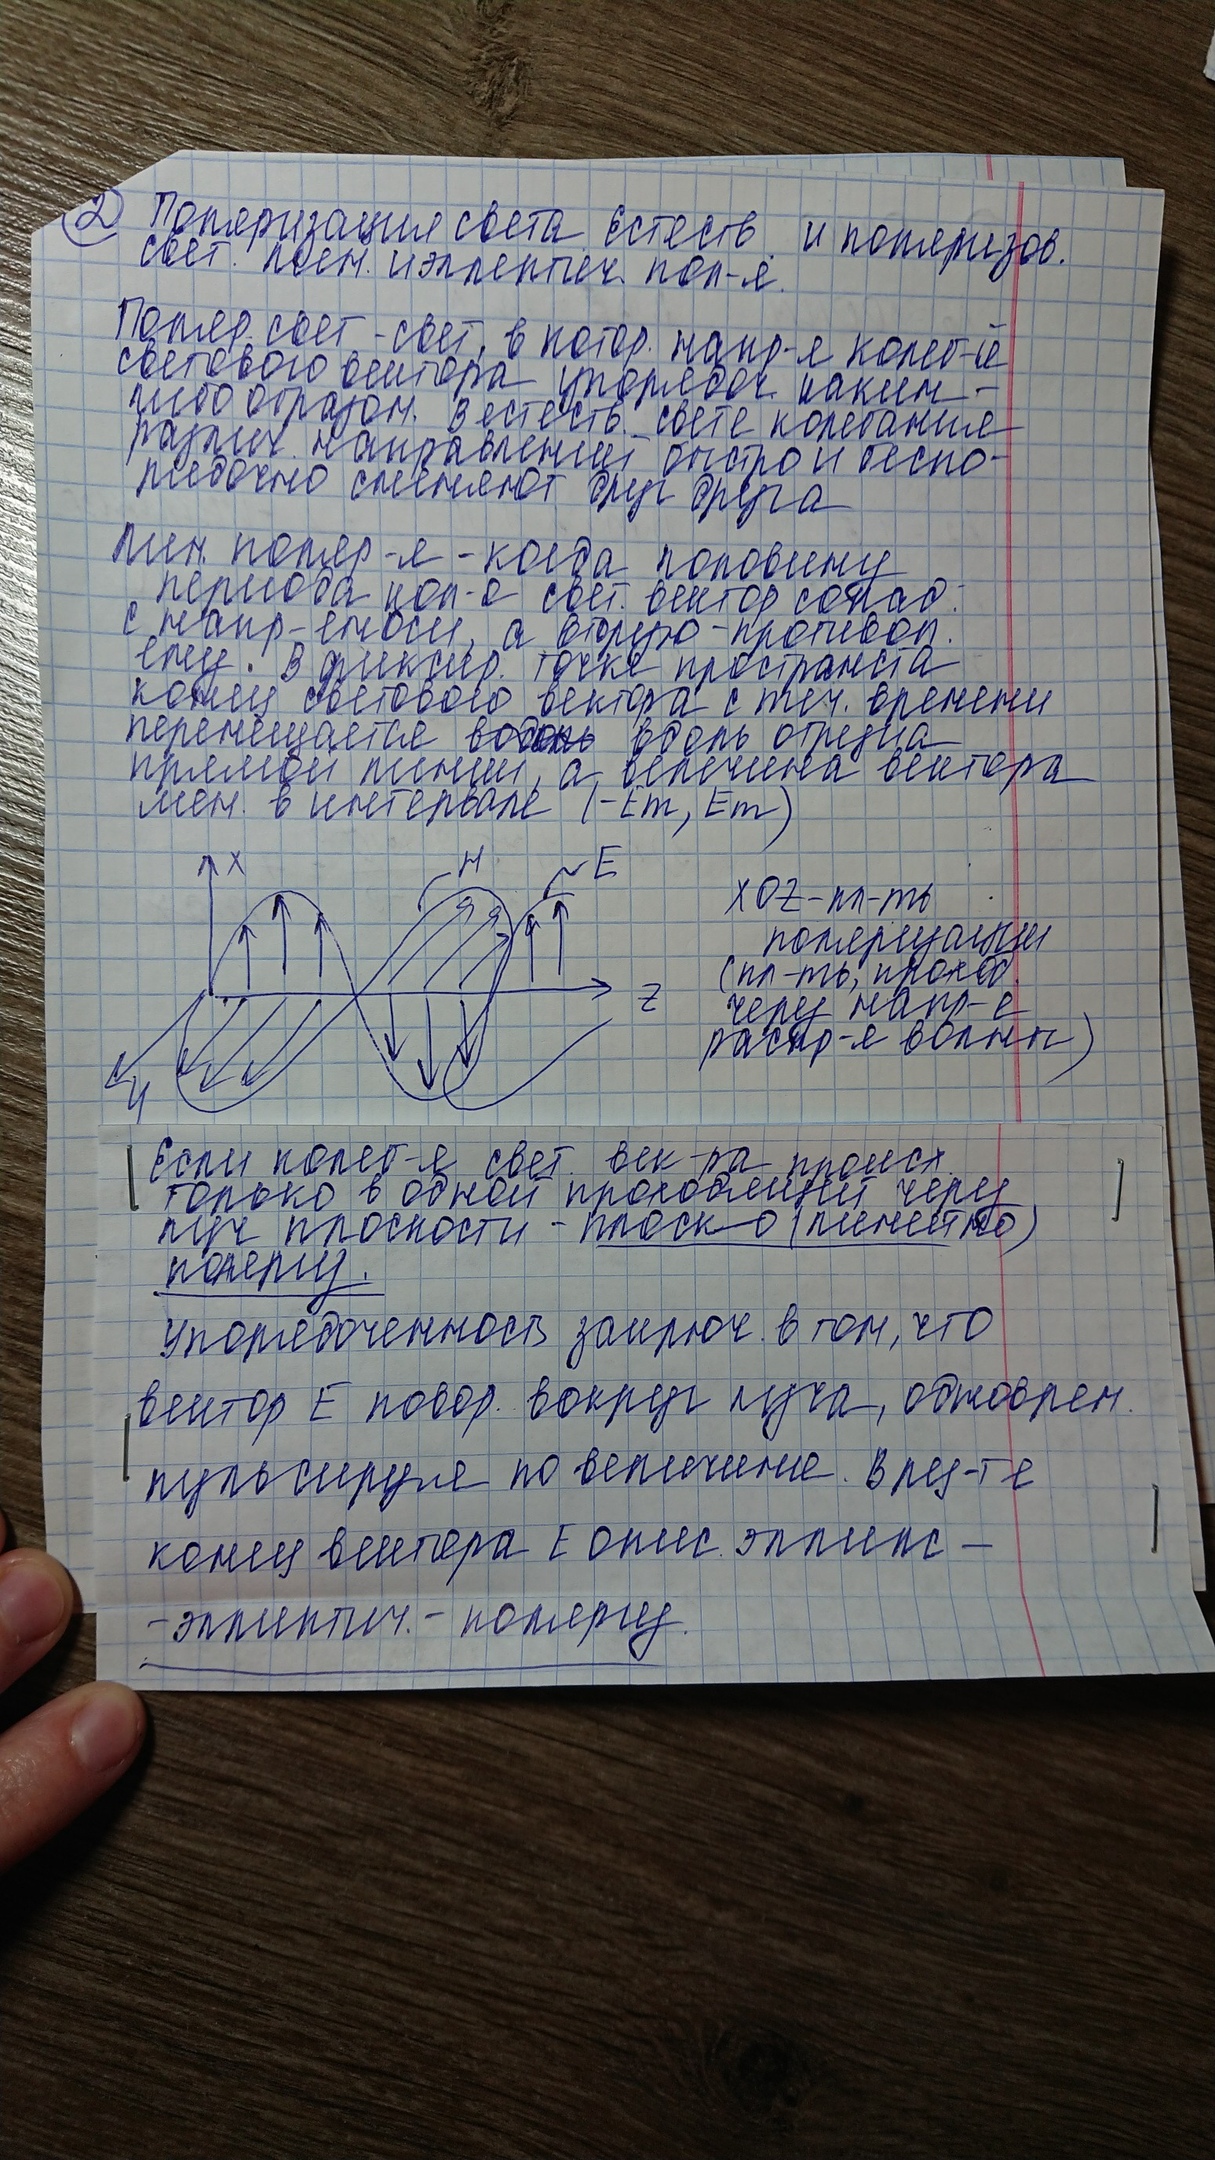 2 Поляризация света. Естеств. и поляризов.
свет. Лин. и эллептич. пол-я.
Поляр. свет - свет, в котор. напр-я колеб-й
светового вектора упорядоч. каким-
либо образом. В естеств. свете колебания
различ. направлений быстро и беспо-
рядочно сменяют друг друга
Лин. поляр-я - когда половину
периода кол-я свет. вектор совпад.
с напр-ем оси, а вторую - противоп.
ему. В фиксир. точке пространста
конец светового вектора с теч. времени
перемещается вдоль отрезка
прямой линии, а величина вектора
мен. в интервале (-Em, Em)
X H E
Z
y
XOZ - пл-ть
поляризации
(пл-ть, проход.
через напр-е
распр-я волны)
Если колеб-я свет. век-ра происх.
только в одной проходящей через
луч плоскости - плоско (линейно)
поляриз.
Упорядоченность заключ. в том, что
вектор E повор. вокруг луча, одноврем.
пульсируя по величине. В рез-те
конец вектора E опис. эллипс -
- эллиптич. - поляриз.